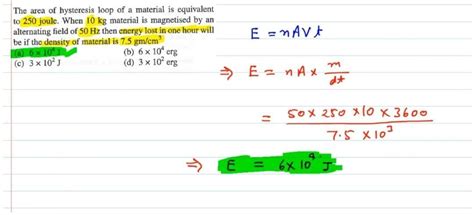 The area of hysteresis loop of a material is equivalent
to 250 joule. When 10 kg material is magnetised by an
alternating field of 50 Hz then energy lost in one hour will
be if the density of material is 7.5 gm/cm³
(a) 6 × 10⁴ J (b) 6 × 10⁴ erg
(c) 3 × 10² J (d) 3 × 10² erg
E = nAVt
⇒ E = nA × m/dt
= 50 × 250 × 10 × 3600 / 7.5 × 10³
⇒ E = 6 × 10⁴ J